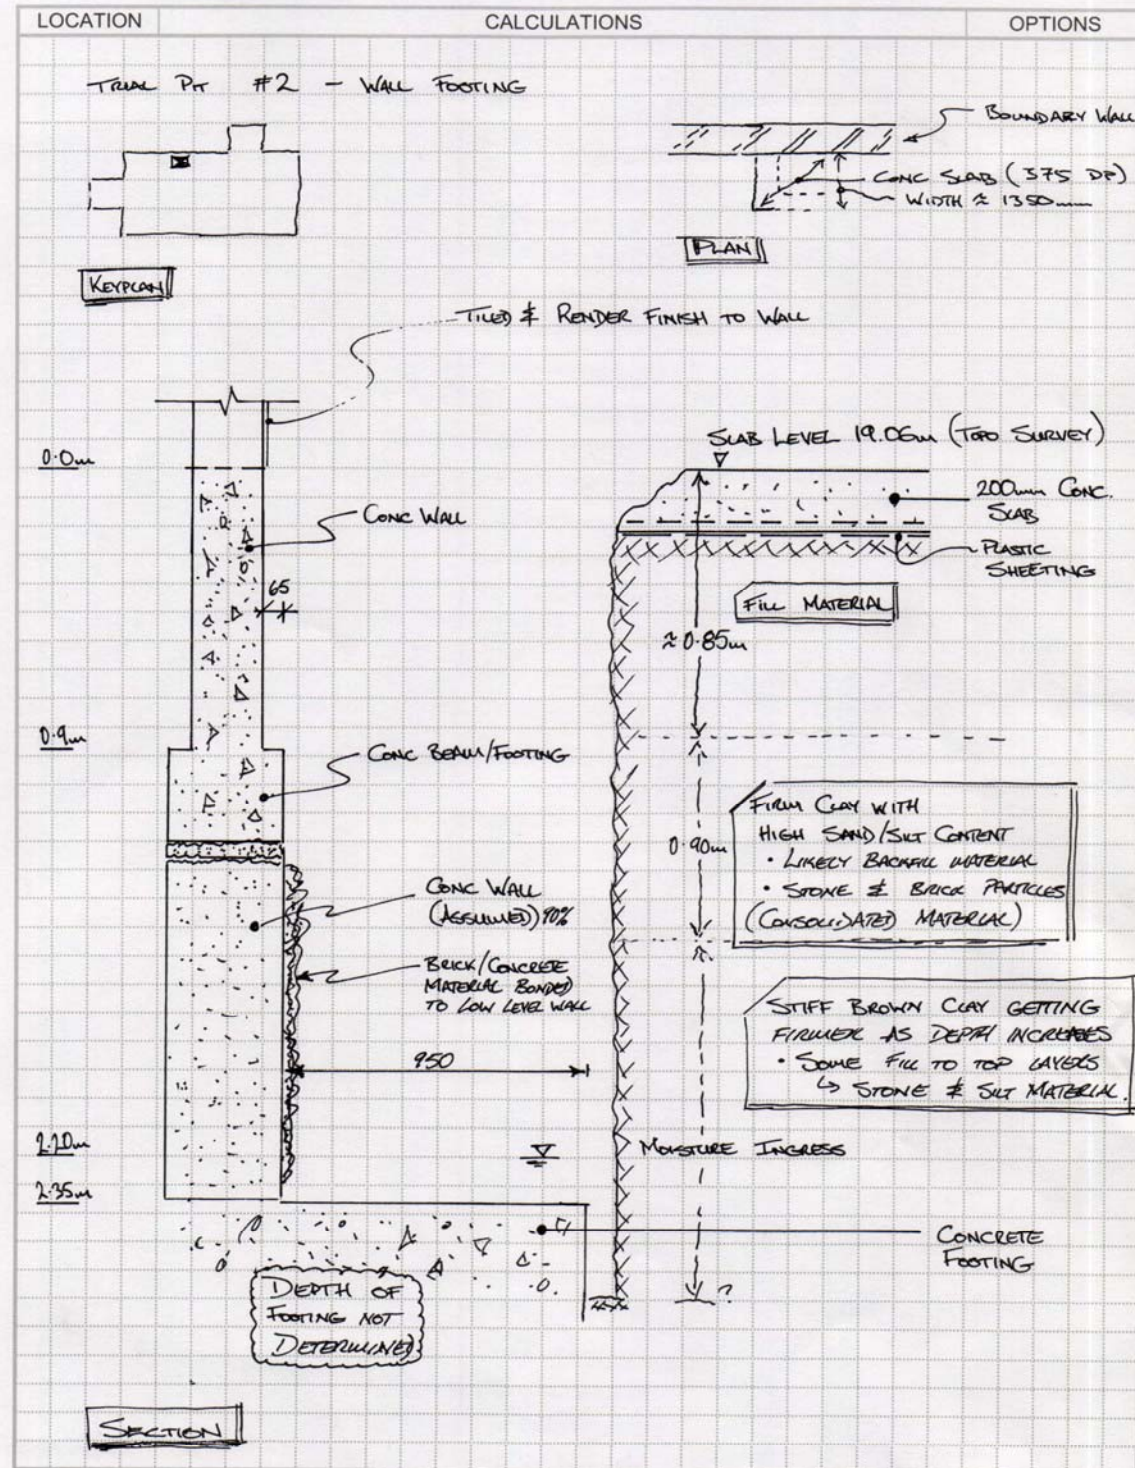 LOCATION
CALCULATIONS
OPTIONS
TRIAL PIT #2 - WALL FOOTING
BOUNDARY WALL
CONC SLAB (375 DP)
WIDTH ≈ 1350mm
PLAN
KEYPLAN
TILED & RENDER FINISH TO WALL
SLAB LEVEL 19.06m (TOPO SURVEY)
0.0m
200mm CONC.
SLAB
CONC WALL
PLASTIC
SHEETING
65
FILL MATERIAL
≈ 0.85m
0.9m
CONC BEAM/FOOTING
FIRM CLAY WITH
HIGH SAND/SILT CONTENT
• LIKELY BACKFILL MATERIAL
• STONE & BRICK PARTICLES
(CONSOLIDATED MATERIAL)
0.90m
CONC WALL
(ASSUMED) 90%
BRICK/CONCRETE
MATERIAL BONDED
TO LOW LEVEL WALL
STIFF BROWN CLAY GETTING
FIRMER AS DEPTH INCREASES
• SOME FILL TO TOP LAYERS
↳ STONE & SILT MATERIAL.
950
2.20m
MOISTURE INGRESS
2.35m
CONCRETE
FOOTING
DEPTH OF
FOOTING NOT
DETERMINED
?
SECTION